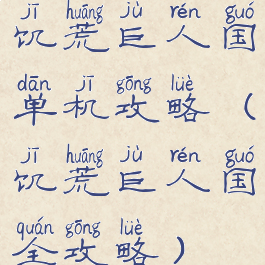 jī huāng jù rén guó
饥荒巨人国
dān jī gōng lüè
单机攻略（
jī huāng jù rén guó
饥荒巨人国
quán gōng lüè
全攻略）